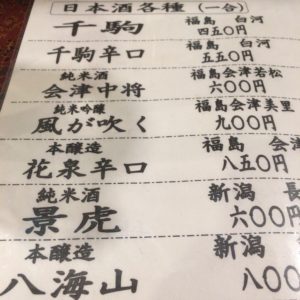 日本酒各種（一合）
千駒 福島 白河 四五〇円
千駒辛口 福島 白河 五五〇円
純米酒 会津中将 福島会津若松 六〇〇円
純米吟醸 風が吹く 福島会津美里 九〇〇円
本醸造 花泉辛口 福島 会津 八五〇円
純米酒 景虎 新潟 長 六〇〇円
本醸造 八海山 新潟 八〇〇円